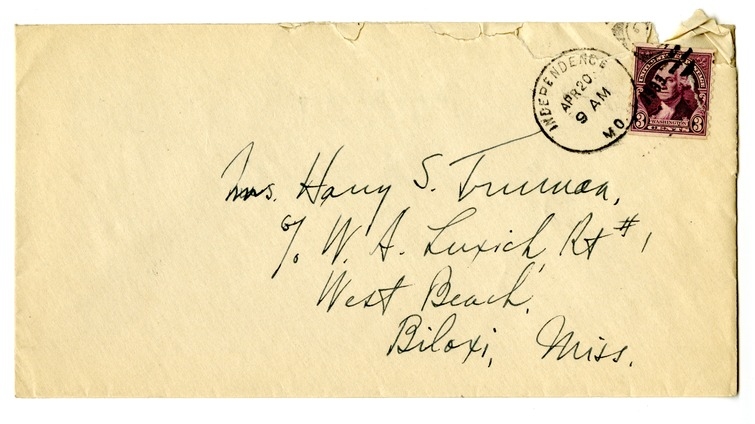 INDEPENDENCE
APR 20
9 AM
MO.
3 WASHINGTON 3
Mrs. Harry S. Truman,
c/o W. A. Luxich, Rt #1
West Beach,
Biloxi, Miss.